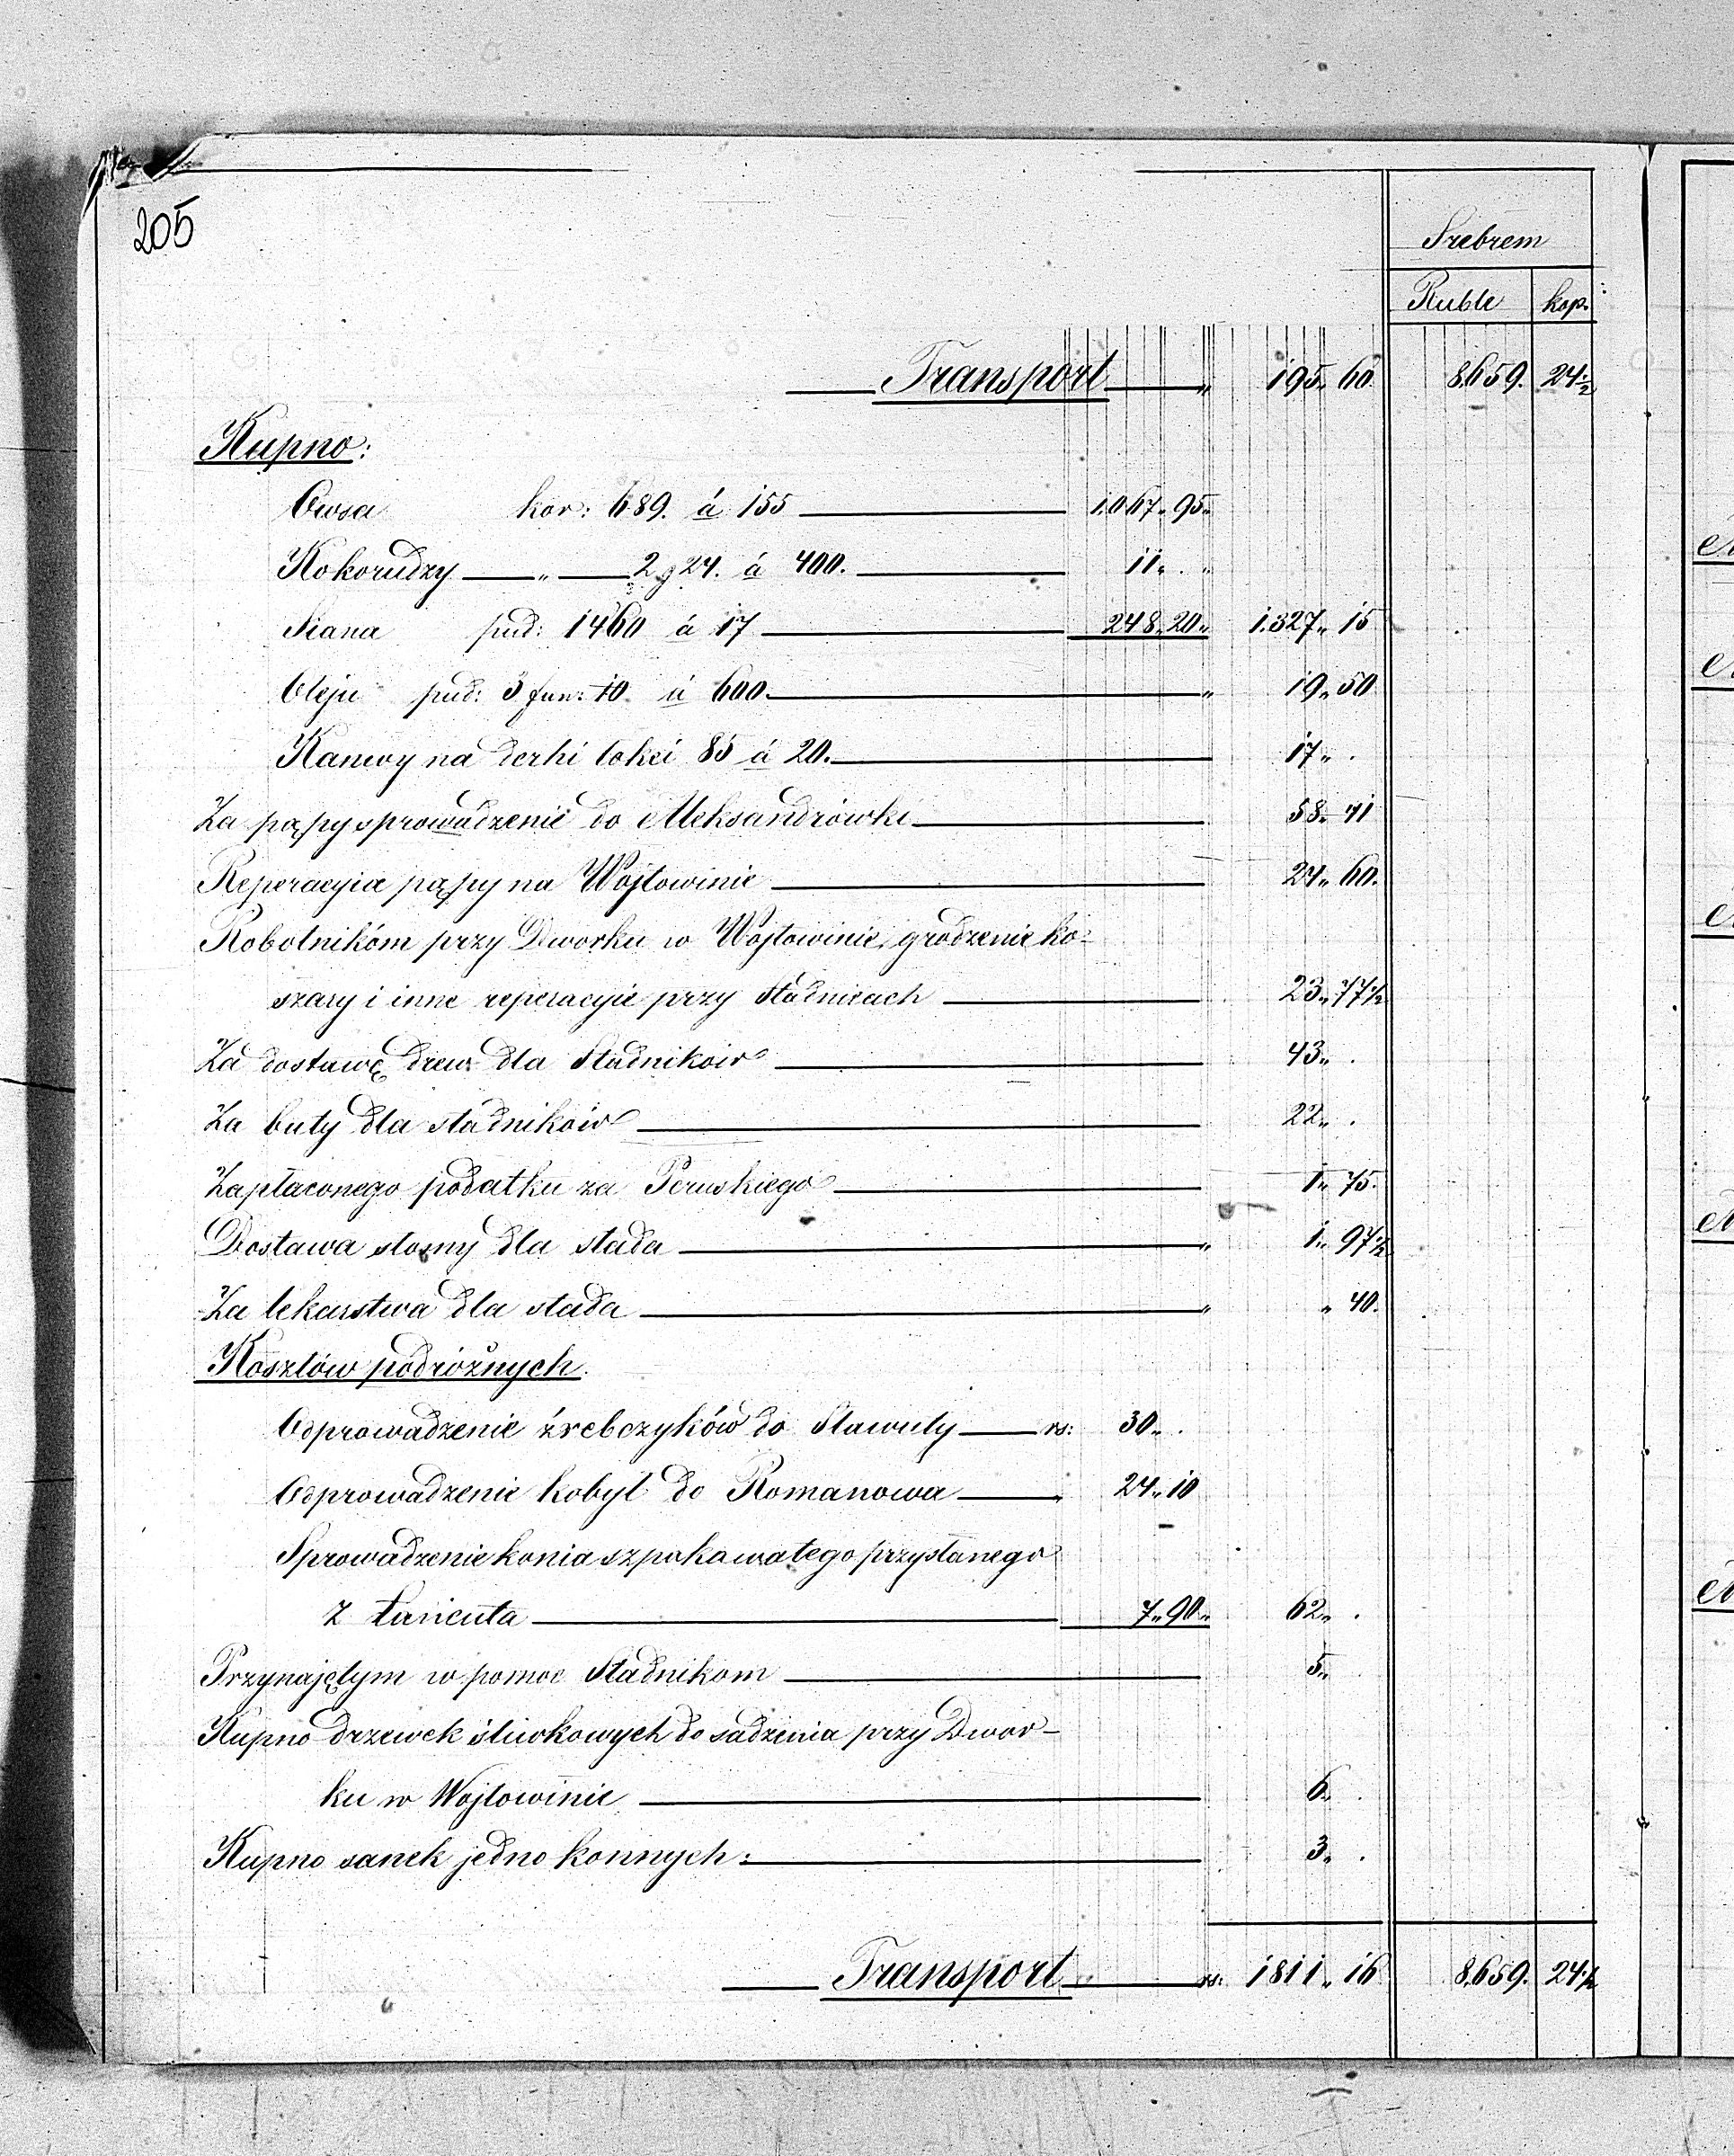 205
Srebrem
Ruble kop.
Transport „ 195„ 60 8,659. 24½
Kupno:
Owsa kor: 689. á 155 1,067„ 95„
Kokorudzy „ 2 g 24. á 400. 11„ . „
Siana pud: 1460 á 17 248„ 20„ 1,327„ 15
Oleju pud: 3 fun: 10 á 600. „ 19„ 50
Kanwy na derhi łokci 85 á 20. 17„ .
Za pąpy sprowadzenie do Aleksandrówki 58„ 41
Reperacyia pąpy na Wójtowinie 24„ 60.
Robotnikóm przy Dworku w Wojtowinie, grodzenie ko-
szary i inne reperacyie przy stadnicach 23„ 77½
Za dostawę drew dla Stadników 43„ .
Za buty dla stadników 22„ .
Zapłaconego podatku za Peruskiego 1„ 75.
Dostawa słomy dla stada „ 1„ 97½
Za lekarstwa dla stada „ „ 40.
Kosztów podróżnych.
Odprowadzenie źrebczyków do Sławuty rs: 30„ .
Odprowadzenie kobył do Romanowa „ 24„ 10
Sprowadzenie konia szpakowatego przysłanego
z Łańcuta 7„ 90„ 62„ .
Przynajętym w pomoc Stadnikom 5„
Kupno drzewek śliwkowych do sadzenia przy Dwor-
ku w Wojtowinie 6„ .
Kupno sanek jedno konnych: 3„ .
Transport rs: 1811„ 16 8,659. 24½